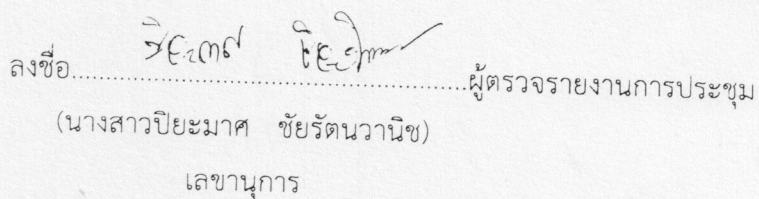 ลงชื่อ................................................ผู้ตรวจรายงานการประชุม
(นางสาวปิยะมาศ ชัยรัตนวานิช)
เลขานุการ